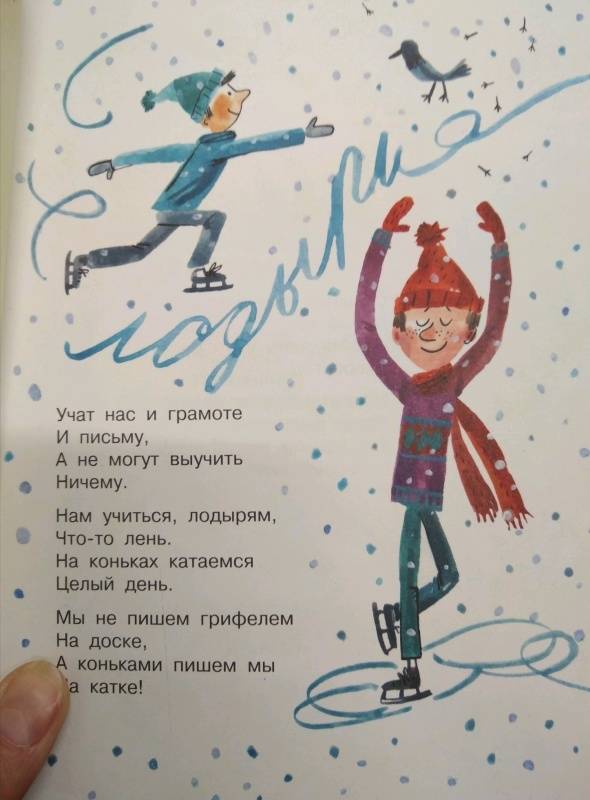 лодыри
Учат нас и грамоте
И письму,
А не могут выучить
Ничему.
Нам учиться, лодырям,
Что-то лень.
На коньках катаемся
Целый день.
Мы не пишем грифелем
На доске,
А коньками пишем мы
а катке!